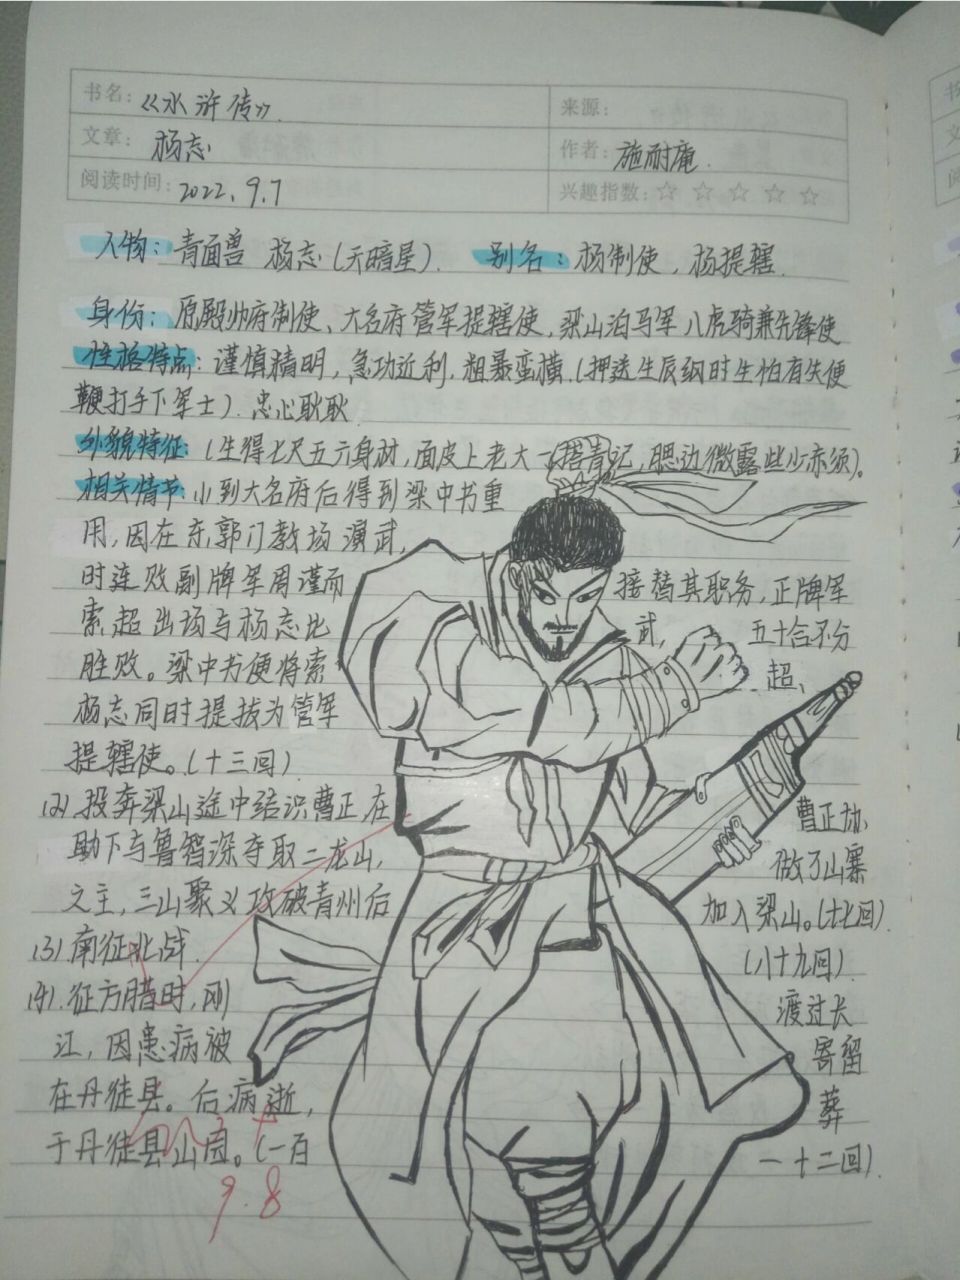 书名：《水浒传》. 来源：
文章：杨志 作者：施耐庵.
阅读时间：2022.9.7 兴趣指数：☆ ☆ ☆ ☆ ☆
人物：青面兽 杨志（天暗星）. 别名：杨制使，杨提辖.
身份：原殿帅府制使、大名府管军提辖使，梁山泊马军八虎骑兼先锋使
性格特点：谨慎精明，急功近利，粗暴蛮横.（押送生辰纲时生怕有失便
鞭打手下军士）. 忠心耿耿
外貌特征：（生得七尺五六身材，面皮上老大一搭青记，腮边微露些少赤须）。
相关情节：(1)到大名府后得到梁中书重
用，因在东郭门教场演武，
时连败副牌军周谨而 接替其职务，正牌军
索超出场与杨志比 武， 五十合不分
胜败。梁中书便将索 超、
杨志同时提拔为管军
提辖使。（十三回）
(2)投奔梁山途中结识曹正，在 曹正协
助下与鲁智深夺取二龙山， 做了山寨
之主，三山聚义攻破青州后 加入梁山。（十七回）
(3).南征北战. （八十九回）
(4).征方腊时，刚 渡过长
江，因患病被 寄留
在丹徒县。后病逝， 葬
于丹徒县山园。（一百 一十二回）
9.8